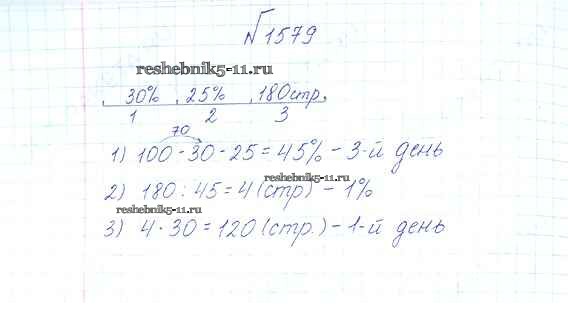 №1579
reshebnik5-11.ru
30% 25% 180стр.
1 2 3
70
1) 100 - 30 - 25 = 45% - 3-й день
reshebnik5-11.ru
2) 180 : 45 = 4 (стр) - 1%
reshebnik5-11.ru
3) 4 · 30 = 120 (стр.) - 1-й день